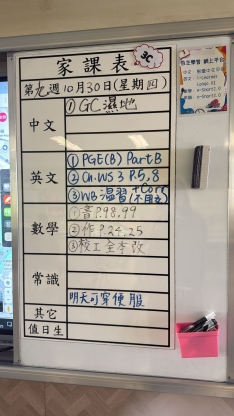 家課表
3C
第九週10月30日(星期四)
中文
① GC濕地
英文
① PGE(B) Part B
② Ch.WS 3 P.5,8
③ WB 溫習 + Corr
(不用交)
數學
① 書P.98,99
② 作P.24,25
③ 校工全本改
常識
明天可穿便服
其它
值日生
自主學習 網上平台